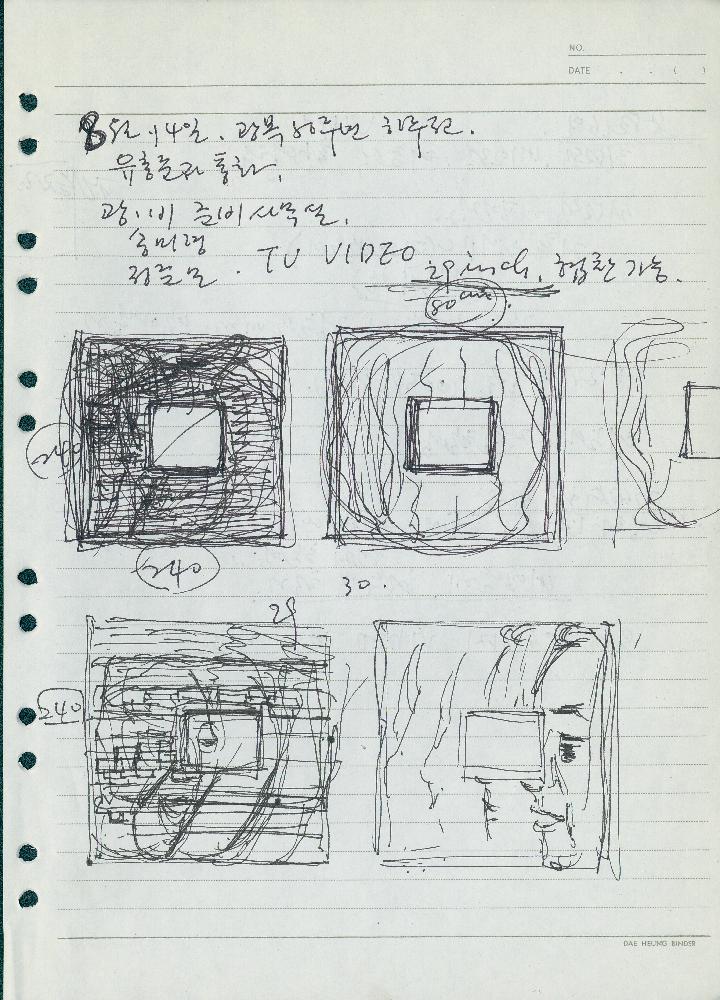 NO.
DATE . . ( )
8월 14일. 광복 50주년
유홍준과 통화.
광.비 준비사무실.
송미령
TV VIDEO
29 inch, 협찬 가능.
80
240
240
30.
29
240
DAE HEUNG BINDER